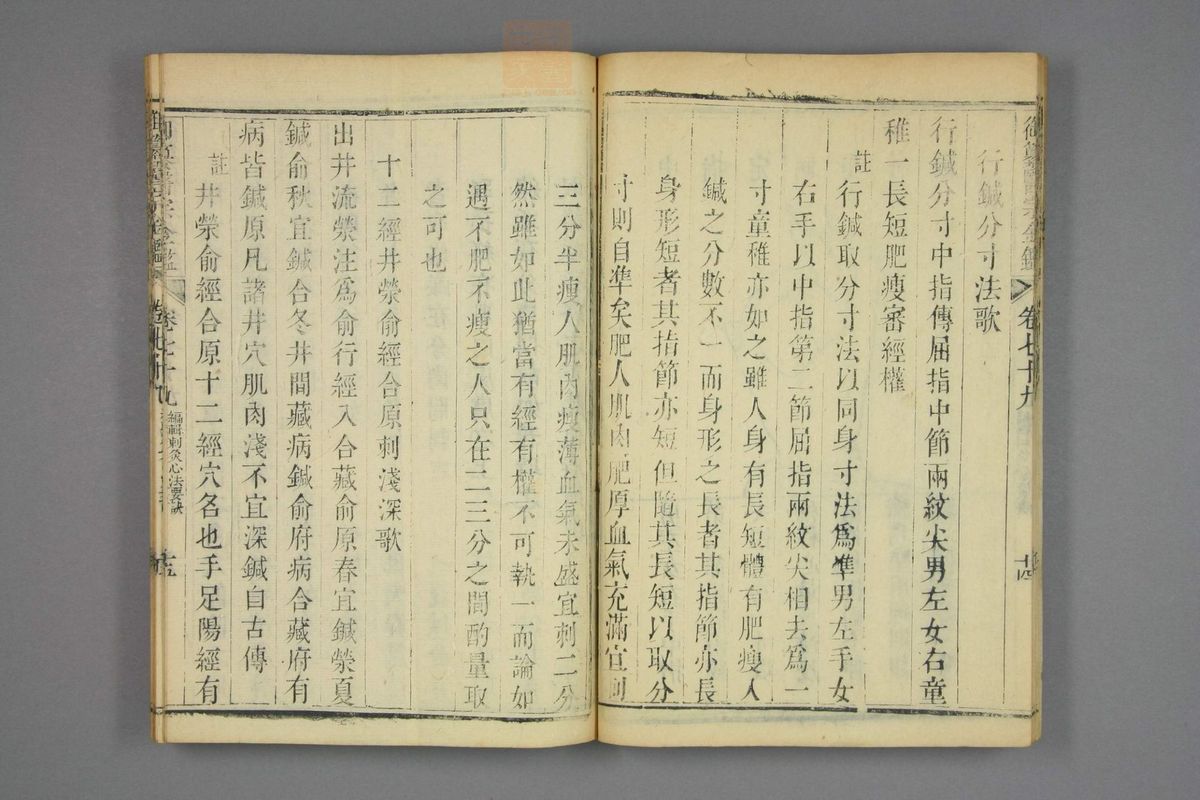 御纂醫宗金鑑 卷七十九
行鍼分寸法歌
行鍼分寸中指傳屈指中節兩紋尖男左女右童
稚一長短肥瘦審經權
註行鍼取分寸法以同身寸法爲準男左手女
右手以中指第二節屈指兩紋尖相去爲一
寸童稚亦如之雖人身有長短體有肥瘦人
鍼之分數不一而身形之長者其指節亦長
身形短者其指節亦短但隨其長短以取分
寸則自準矣肥人肌肉肥厚血氣充滿宜刺
三分半瘦人肌肉瘦薄血氣未盛宜刺二分
然雖如此猶當有經有權不可執一而論如
遇不肥不瘦之人只在二三分之間酌量取
之可也
十二經井滎俞經合原刺淺深歌
出井流滎注爲俞行經入合藏俞原春宜鍼滎夏
鍼俞秋宜鍼合冬井間藏病鍼俞府病合藏府有
病皆鍼原凡諸井穴肌肉淺不宜深鍼自古傳
註井滎俞經合原十二經穴名也手足陽經有
卷七十九
編輯刺灸心法要訣